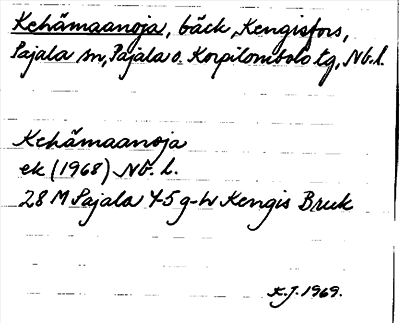 Kehämaanoja, bäck, Kengisfors,
Pajala sn, Pajala o. Korpilombolo tg, Nb. l.
Kehämaanoja
ek (1968) Nb. l.
28 M Pajala 4-5 g-h Kengis Bruk
K.J. 1969.